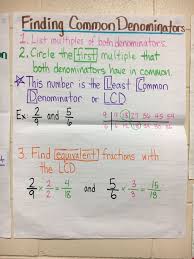 Finding Common Denominators
1. List multiples of both denominators.
2. Circle the first multiple that
both denominators have in common.
* This number is the Least Common
Denominator or LCD
Ex: 2/9 and 5/6
9 | 9 18 27
6 | 6 12 18
3. Find equivalent fractions with
the LCD.
2/9 × 2/2 = 4/18 and 5/6 × 3/3 = 15/18